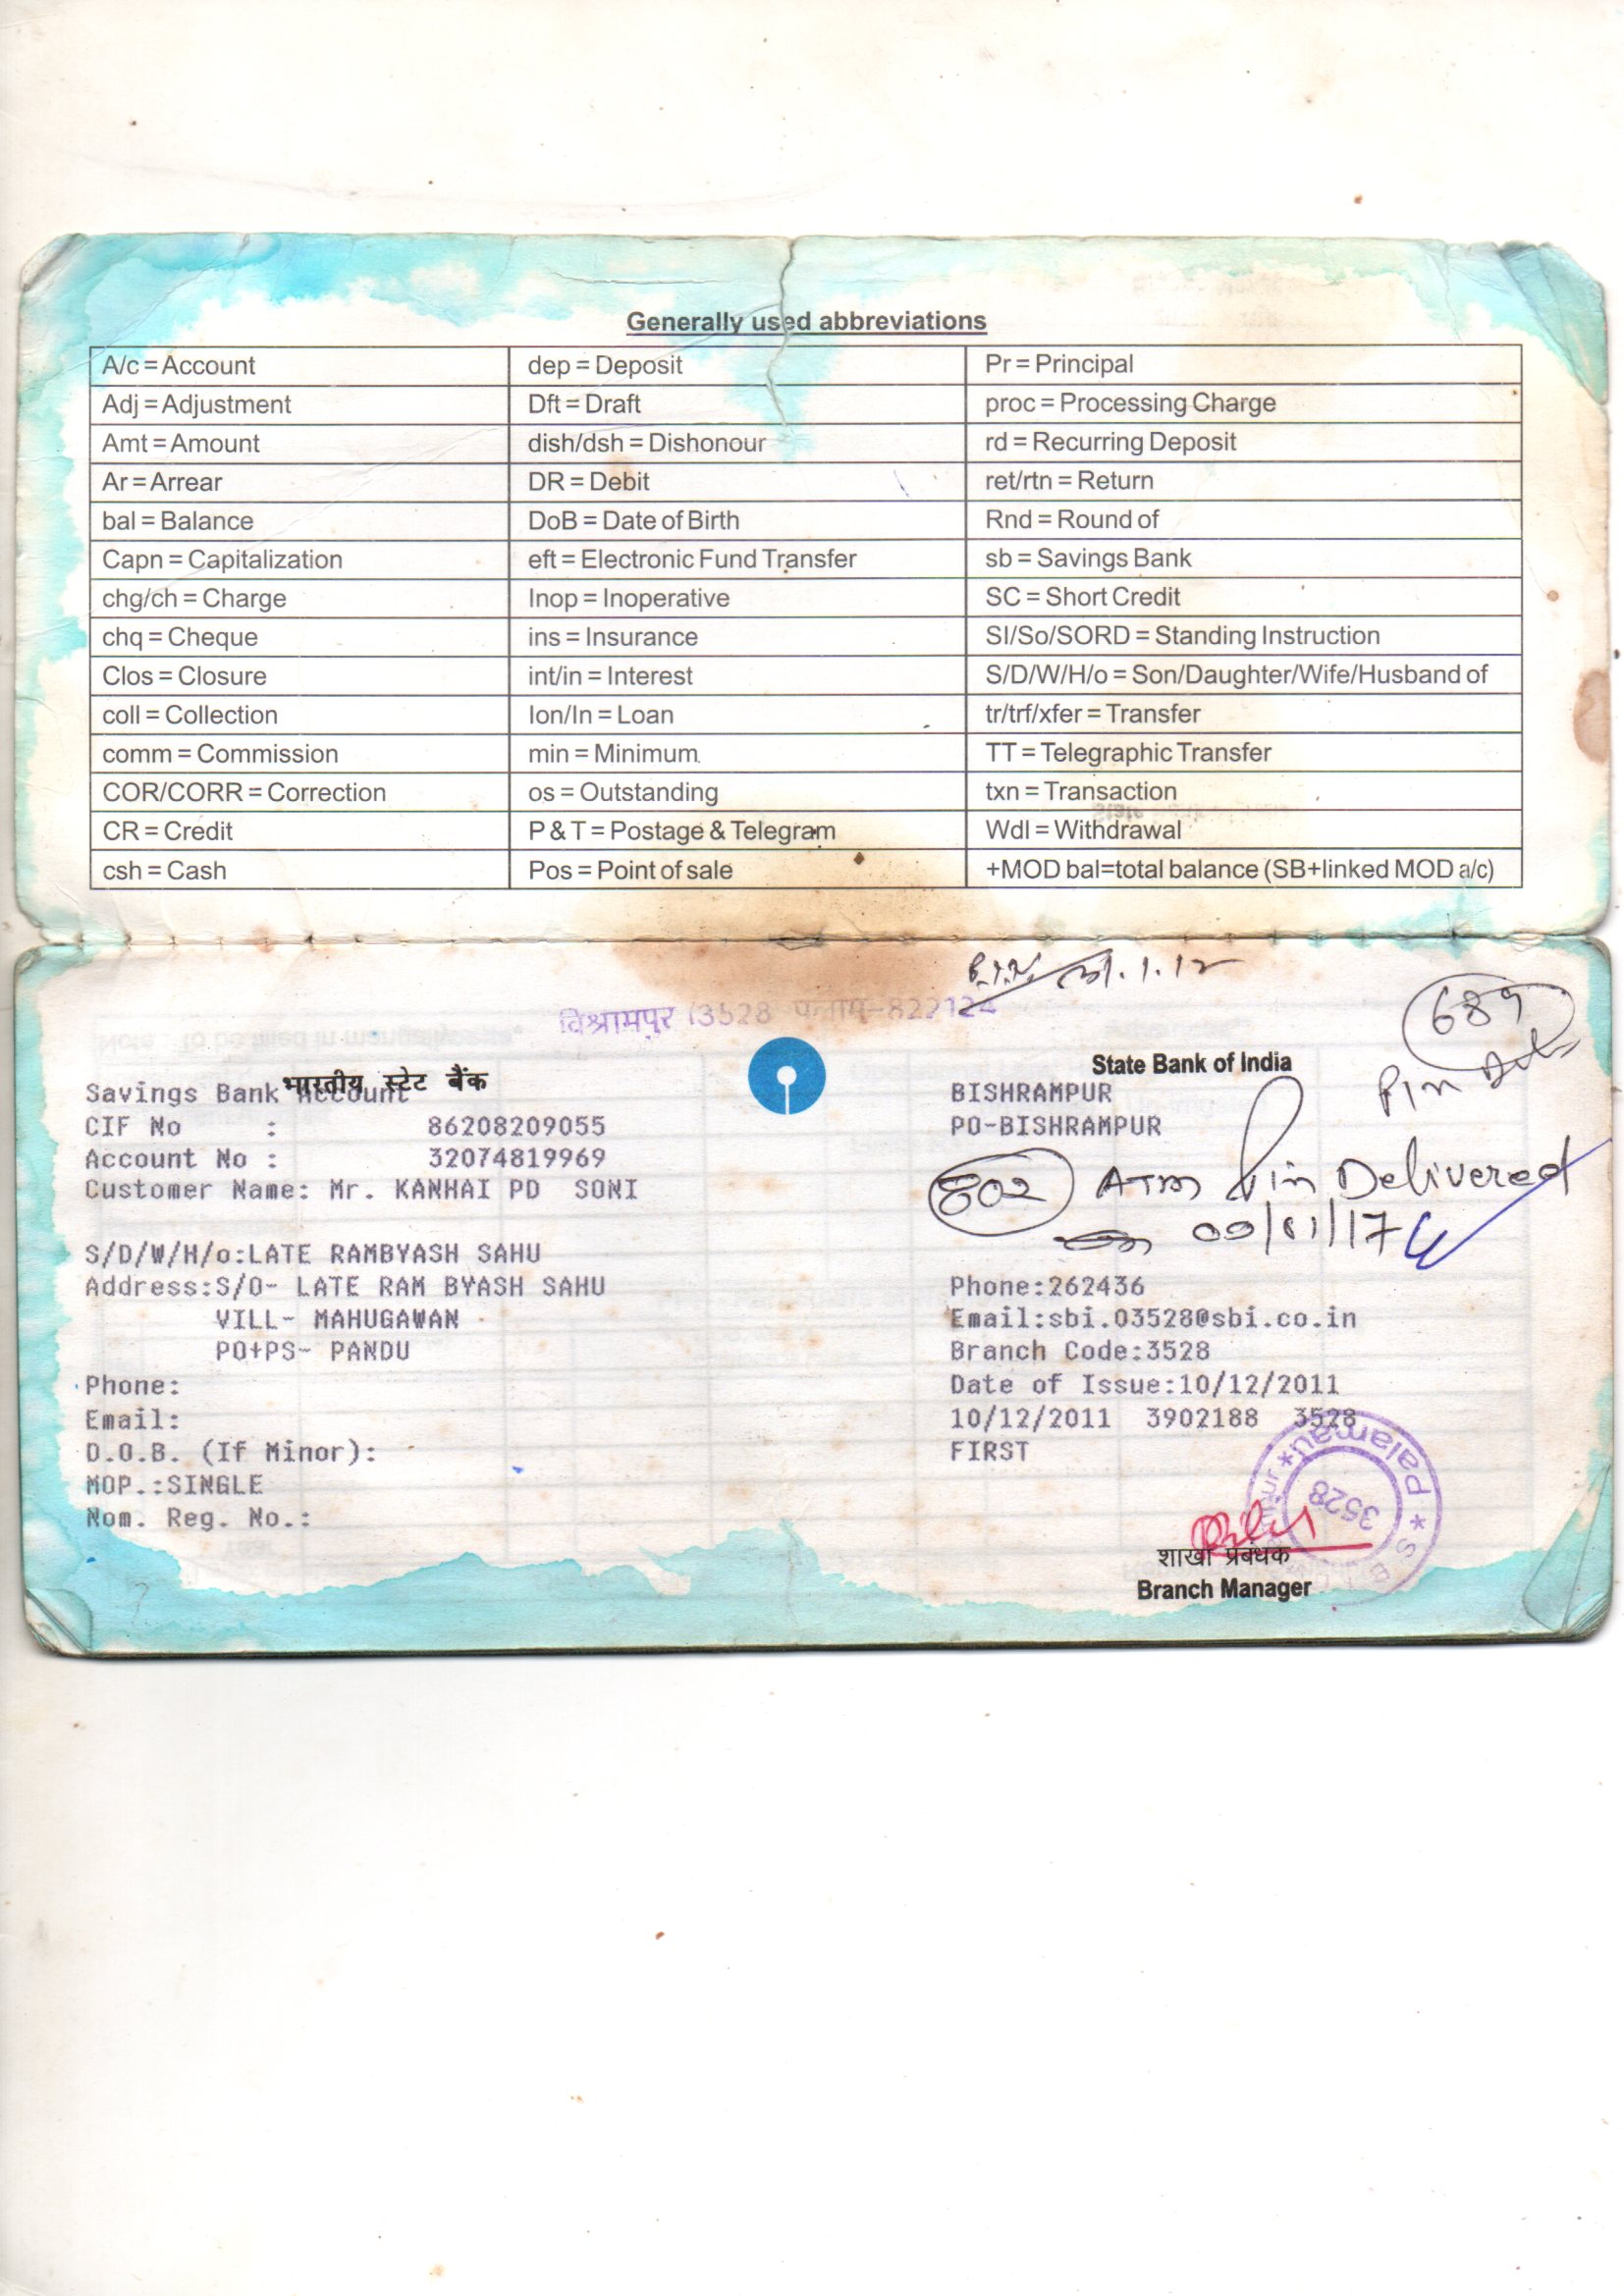 Generally used abbreviations
A/c = Account dep = Deposit Pr = Principal
Adj = Adjustment Dft = Draft proc = Processing Charge
Amt = Amount dish/dsh = Dishonour rd = Recurring Deposit
Ar = Arrear DR = Debit ret/rtn = Return
bal = Balance DoB = Date of Birth Rnd = Round of
Capn = Capitalization eft = Electronic Fund Transfer sb = Savings Bank
chg/ch = Charge Inop = Inoperative SC = Short Credit
chq = Cheque ins = Insurance SI/So/SORD = Standing Instruction
Clos = Closure int/in = Interest S/D/W/H/o = Son/Daughter/Wife/Husband of
coll = Collection lon/ln = Loan tr/trf/xfer = Transfer
comm = Commission min = Minimum TT = Telegraphic Transfer
COR/CORR = Correction os = Outstanding txn = Transaction
CR = Credit P & T = Postage & Telegram Wdl = Withdrawal
csh = Cash Pos = Point of sale +MOD bal=total balance (SB+linked MOD a/c)
31.1.12
विश्रामपुर (3528 पलामू-822124
689
Pin
भारतीय स्टेट बैंक State Bank of India
Savings Bank Account BISHRAMPUR
CIF No : 86208209055 PO-BISHRAMPUR
Account No : 32074819969
Customer Name: Mr. KANHAI PD SONI
802 ATM Pin Delivered
09/01/17
S/D/W/H/o:LATE RAMBYASH SAHU
Address:S/O- LATE RAM BYASH SAHU Phone:262436
VILL- MAHUGAWAN Email:sbi.03528@sbi.co.in
PO+PS- PANDU Branch Code:3528
Phone: Date of Issue:10/12/2011
Email: 10/12/2011 3902188 3528
D.O.B. (If Minor): FIRST
MOP.:SINGLE
Nom. Reg. No.:
Palamau
3528
शाखा प्रबंधक
Branch Manager